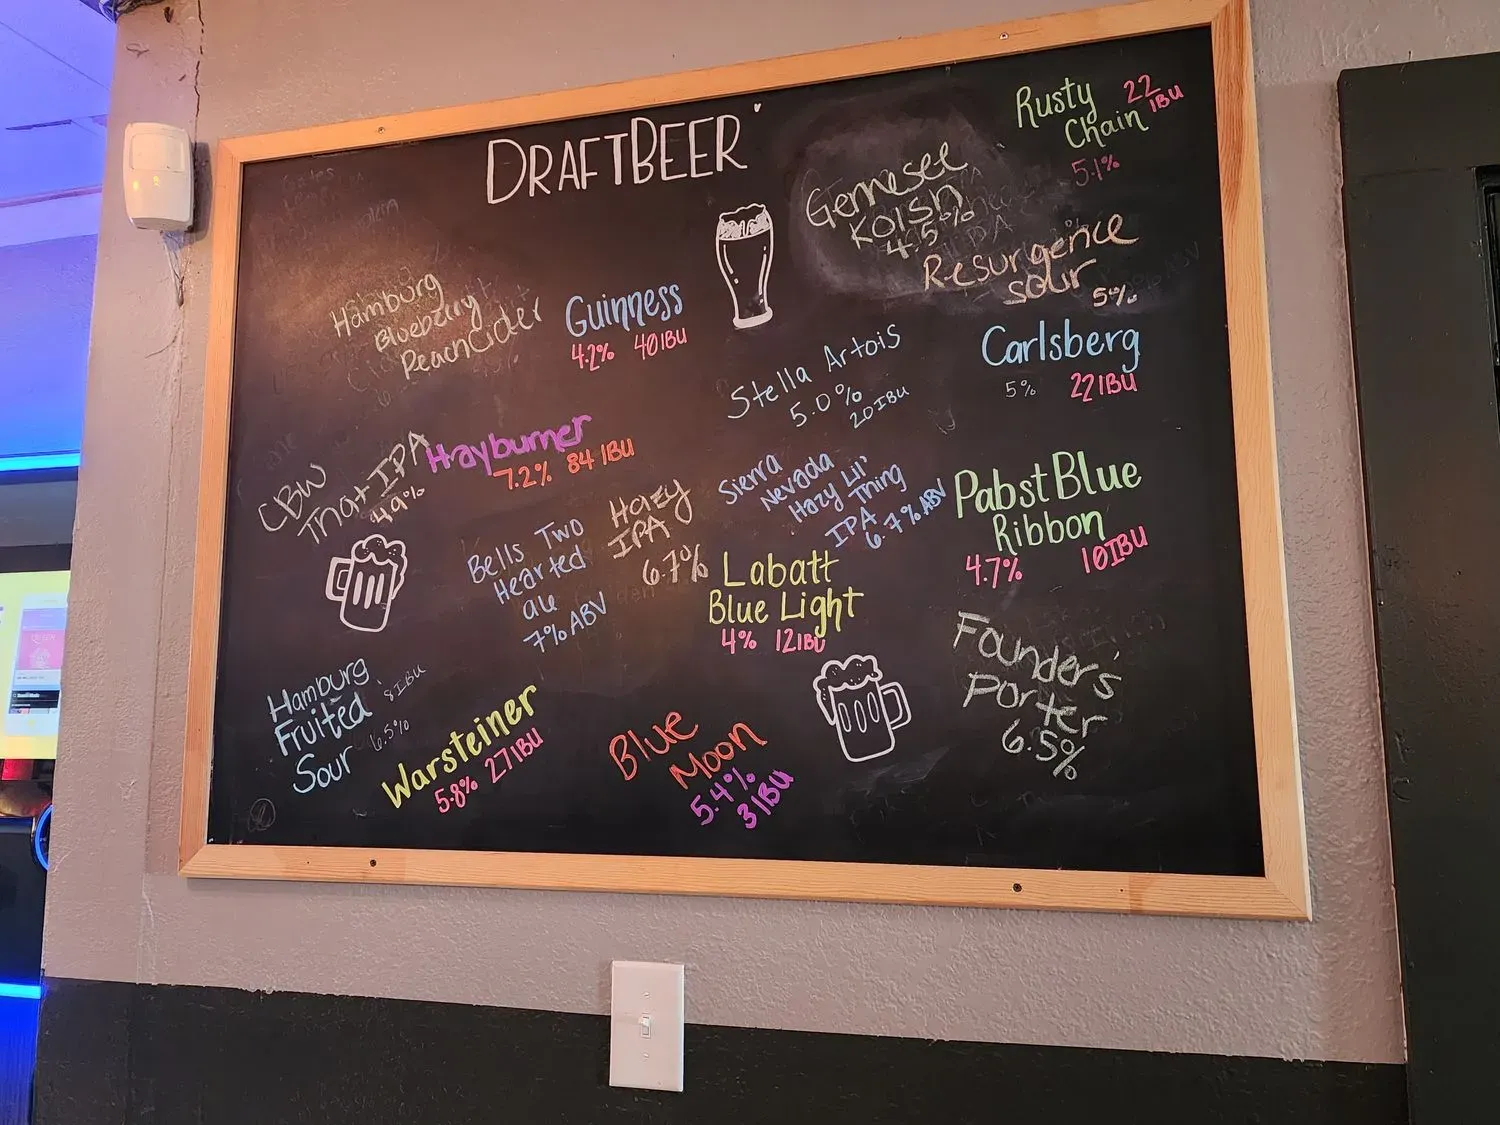 DRAFTBEER
Rusty
Chain
22
IBU
5.1%
Gennesee
Kolsh
4.5%
Resurgence
sour
5%
Hamburg
Blueberry
Peach Cider
Guinness
4.2% 40IBU
Stella Artois
5.0%
20IBU
Carlsberg
5% 22IBU
CBW
That IPA
4.9%
Hayburner
7.2% 84 IBU
Hazy
IPA
6.7%
Sierra
Nevada
Hazy Lil'
Thing
IPA
6.7% ABV
Pabst Blue
Ribbon
4.7% 10IBU
Bells Two
Hearted
ale
7% ABV
Labatt
Blue Light
4% 12IBU
Founder's
Porter
6.5%
Hamburg
Fruited
Sour
8IBU
6.5%
Warsteiner
5.8% 27IBU
Blue
Moon
5.4%
31BU